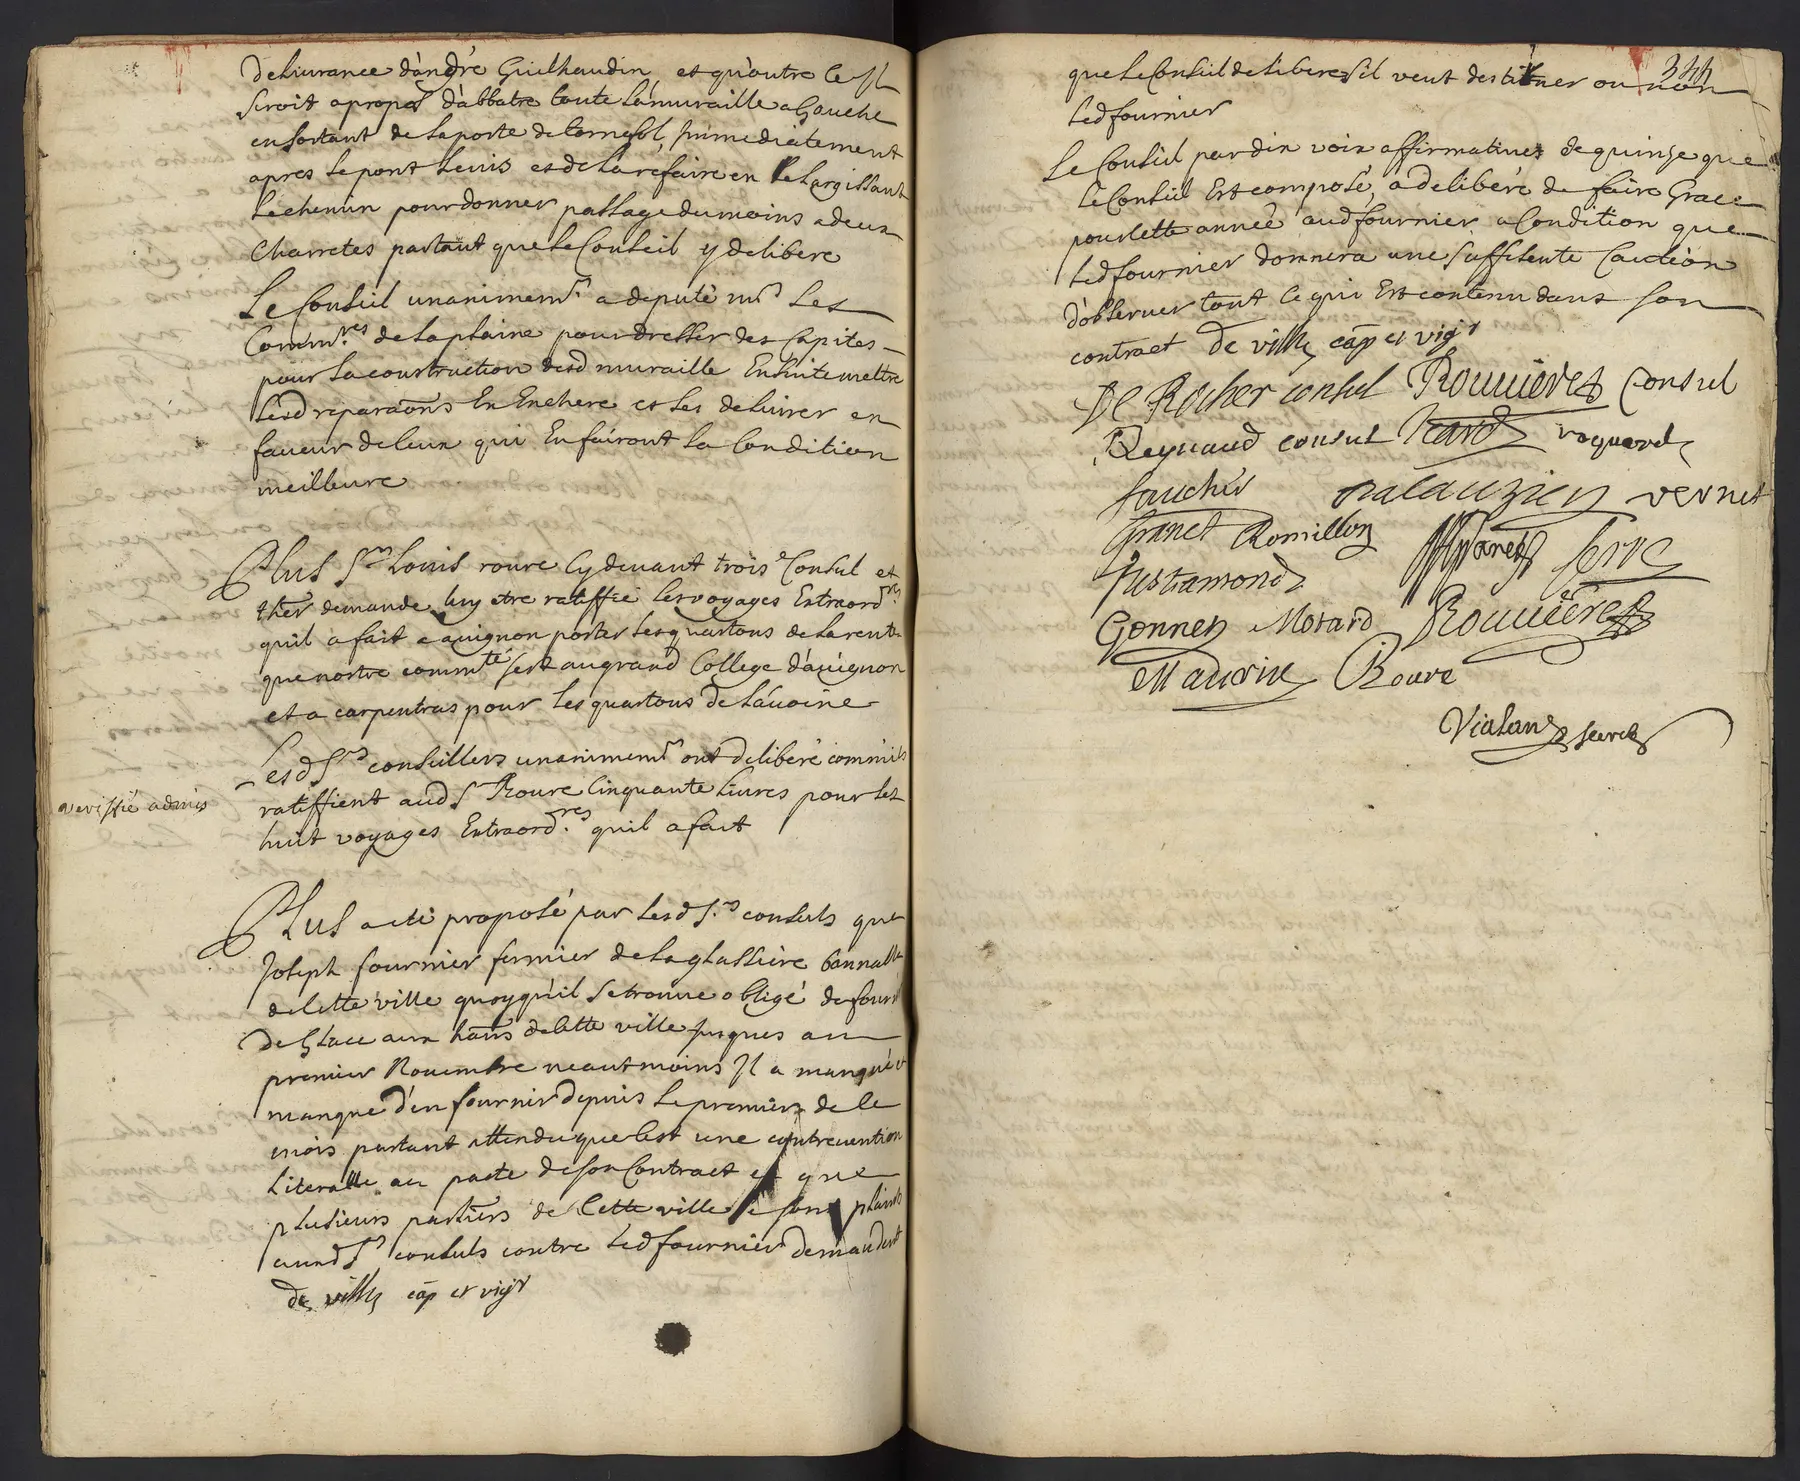 deLiurance d'andré Guilhaudin, et qu'outre ce Il
seroit apropos d'abbatre toute La muraille a Gauche
en sortant de La porte de tornefol, Immediatement
apres Le pont Levis et de La refaire en Le Largissant
Le chemin pour donner passage du moins a deux
Charretes partant que Le Conseil y delibere
Le Conseil unanimemt a deputé mrs Les
Commres de La plaine pour dresser des Capites
pour La construction desd muraille Ensuite mettre
Lesd reparaons En Enchere et Les deLiurer en
faueur de Ceux qui En fairont La Condition
meilleure
Plus Sr Louis roure Cy deuant trois.e Consul et
ther demande Luy etre ratiffié Les voyages Extraordres
quil a fait a auignon porter Les quartons de La rente
que nostre commté sert au grand College d'auignon
et a carpentras pour Les quartons de L'auoine
Lesd Srs conseillers unanimemt ont delibéré
ratiffient aud Sr Roure Cinquante Liures pour Les
huit voyages Extraordres quil a fait
averiffié admis
Plus a eté proposé par Lesd Srs consuls que
Joseph fournier fermier de La glassiere bannalle
de Cette ville quoyqu'il se trouue obligé de fournir
de Glace aux hans de Cette ville Jusques au
premier Nouembre neautmoins Il a manqué et
manque d'en fournir depuis Le premier de Ce
mois partant attendu que C'est une contreuention
Literalle au pacte de son Contract et que
plusieurs partiers de Cette ville se sont plaints
auxd Srs consuls contre Led fournier demandent
De ville cap et vigr
344
que Le Conseil delibere sil veut destituer ou non
Led fournier
Le Conseil par dix voix affirmatiues de quinze que
Le Conseil Est composé, a deliberé de faire Grace
pour Cette année aud fournier a Condition que
Led fournier donnera une suffisente Caution
d'obseruer tout Ce qui Est contenu dans son
contract De ville cap et vigr
De Rocher consul Rouuiere Consul
Reynaud consul Icard roquard
faucher Palauzien vernet
Granet Romillon Serre
Justamond
Gonnet Morard Rouuiere
Maurin Roure
Vialand secre